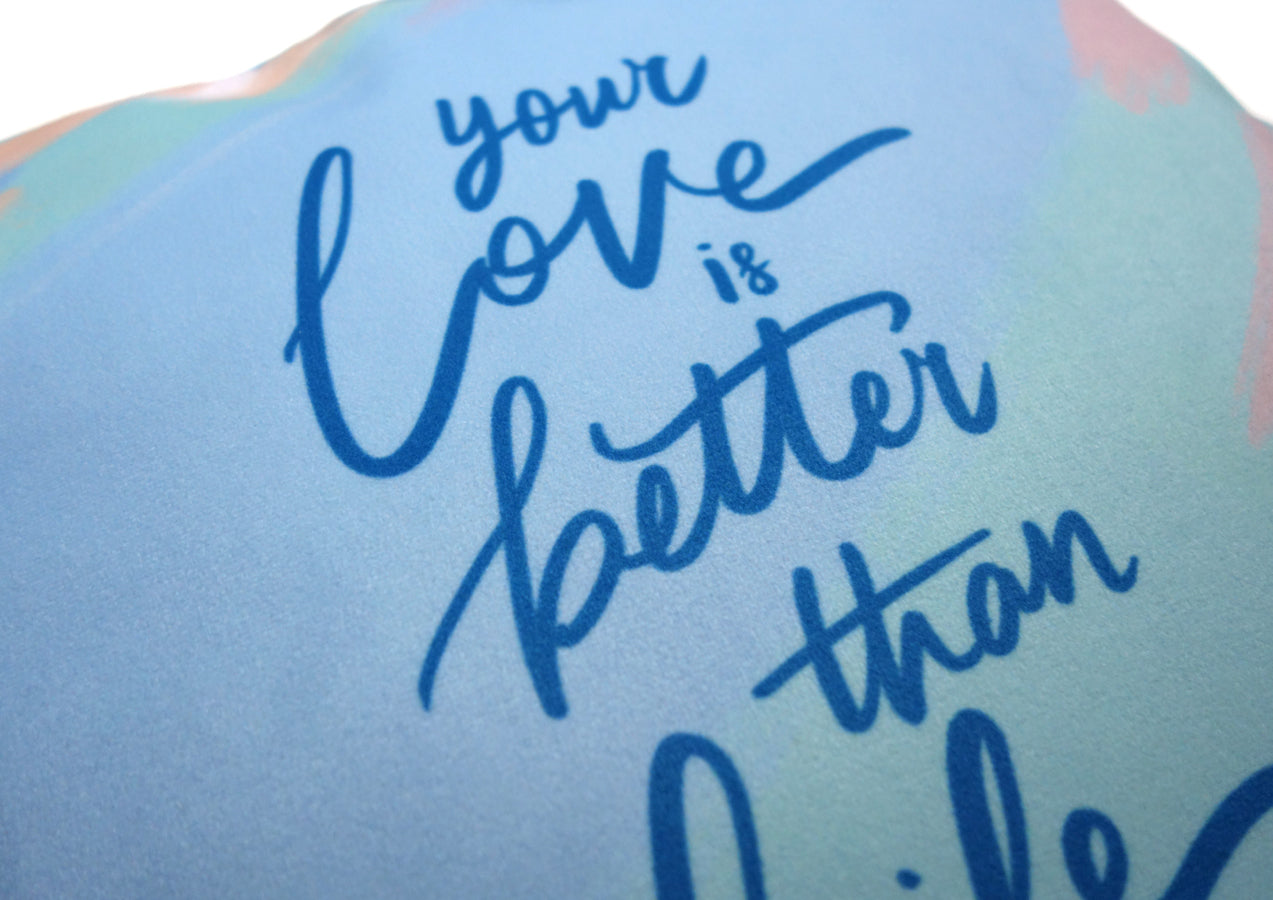 your
love
is
better
than
life